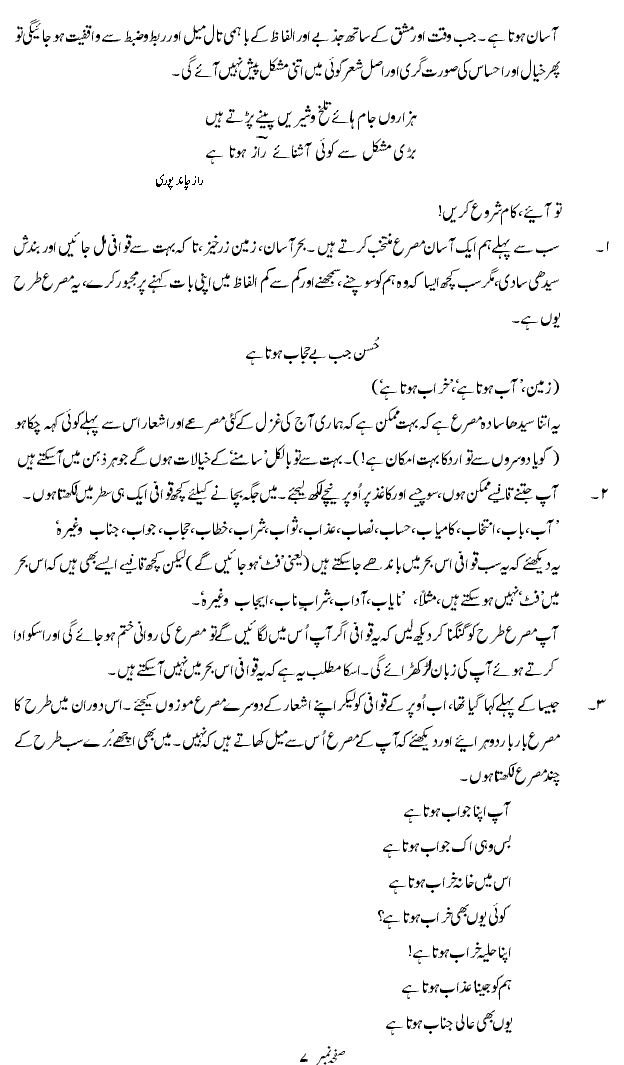 آسان ہوتا ہے ۔ جب وقت اور مشق کے ساتھ جذبے اور الفاظ کے باہمی تال میل اور ربط و ضبط سے واقفیت ہو جائیگی تو
پھر خیال اور احساس کی صورت گری اور اصل شعر گوئی میں اتنی مشکل پیش نہیں آئے گی ۔
ہزاروں جام ہائے تلخ و شیریں پینے پڑتے ہیں
بڑی مشکل سے کوئی آشنائے راز ہوتا ہے
راز چاند پوری
تو آیئے ، کام شروع کریں!
۱۔ سب سے پہلے ہم ایک آسان مصرع منتخب کرتے ہیں ۔ بحر آسان، زمین زرخیز ، تاکہ بہت سے قوافی مل جائیں اور بندش
سیدھی سادی، مگر سب کچھ ایسا کہ وہ ہم کو سوچنے ، سمجھنے اور کم سے کم الفاظ میں اپنی بات کہنے پر مجبور کرے ، یہ مصرع طرح
یوں ہے ۔
حُسن جب بے حجاب ہوتا ہے
( زمین، ’آب ہوتا ہے‘، ’خراب ہوتا ہے‘)
یہ اتنا سیدھا سادہ مصرع ہے کہ بہت ممکن ہے کہ ہماری آج کی غزل کے کئی مصرعے اور اشعار اس سے پہلے کوئی کہہ چکا ہو
( گویا دوسروں سے تواردکا بہت امکان ہے!)۔ بہت سے تو بالکل ’سامنے‘ کے خیالات ہوں گے جو ہر ذہن میں آسکتے ہیں
۲۔ آپ جتنے قافیے ممکن ہوں، سوچیے اور کاغذ پر اُوپر نیچے لکھ لیجئے ۔ میں جگہ بچانے کیلئے کچھ قوافی ایک ہی سطر میں لکھتا ہوں ۔
’آب، باب، انتخاب، کامیاب، حساب، نصاب، عذاب، ثواب، شراب، خطاب، حجاب، جواب، جناب وغیرہ‘
یہ دیکھئے کہ یہ سب قوافی اس بحر میں باندھے جاسکتے ہیں ( یعنی ’فٹ‘ ہو جائیں گے ) لیکن کچھ قافیے ایسے بھی ہیں کہ اس بحر
میں ’فٹ‘ نہیں ہوسکتے ہیں، مثلاً، ’نایاب، آداب، شراب ناب، ایجاب وغیرہ‘۔
آپ مصرع طرح کو گنگنا کر دیکھ لیں کہ یہ قوافی اگر آپ اُس میں لگائیں گے تو مصرع کی روانی ختم ہو جائے گی اور اسکو ادا
کرتے ہوئے آپ کی زبان لڑکھڑائے گی ۔ اسکا مطلب یہ ہے کہ یہ قوافی اس بحر میں نہیں آسکتے ہیں ۔
۳۔ جیسا کے پہلے کہا گیا تھا، اب اُوپر کے قوافی کو لیکر اپنے اشعار کے دوسرے مصرع موزوں کیجئے ۔ اس دوران میں طرح کا
مصرع بار بار دوہرایئے اور دیکھئے کہ آپ کے مصرع اُس سے میل کھاتے ہیں کہ نہیں ۔ میں بھی اچھے بُرے سب طرح کے
چند مصرع لکھتا ہوں ۔
آپ اپنا جواب ہوتا ہے
بس وہی اک جواب ہوتا ہے
اس میں خانہ خراب ہوتا ہے
کوئی یوں بھی خراب ہوتا ہے؟
اپنا حلیہ خراب ہوتا ہے!
ہم کو جینا عذاب ہوتا ہے
یوں بھی عالی جناب ہوتا ہے
صفحہ نمبر ۷